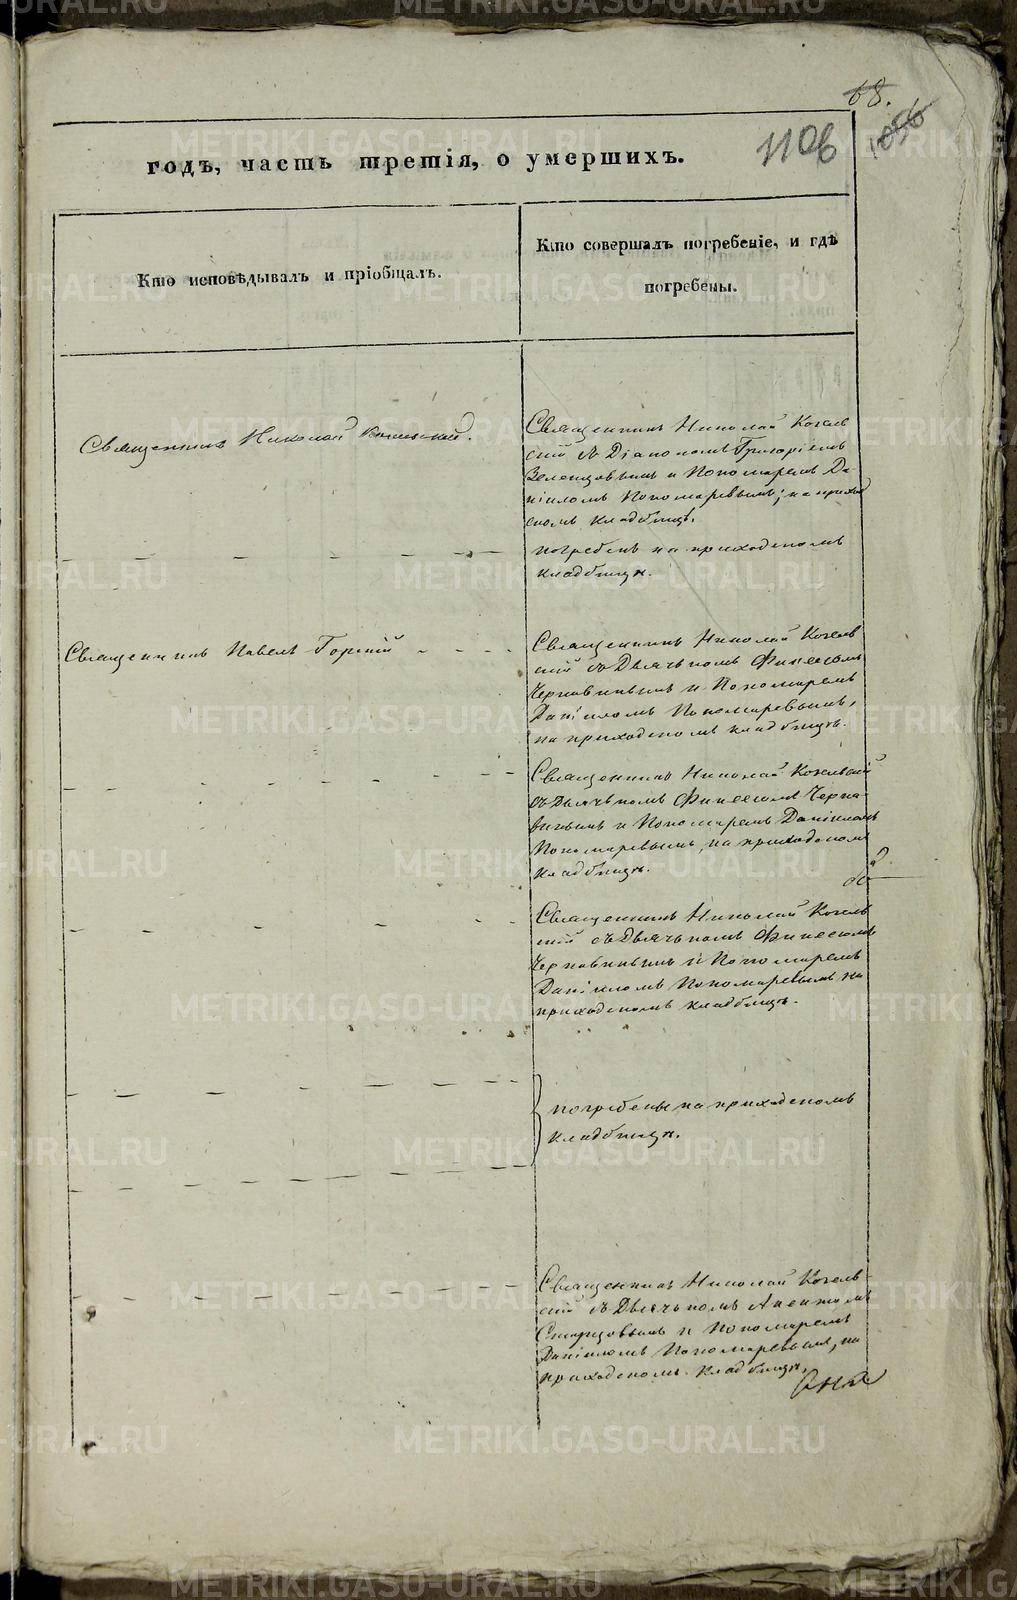 68.
1106
1056
годъ, часть третія, о умершихъ.
Кто исповѣдывалъ и пріобщалъ.
Кто совершалъ погребеніе, и гдѣ
погребены.
Священникъ Николай
Священникъ Николай Козель
скій съ Діакономъ Григоріемъ
Зеленцовымъ и Пономаремъ Да-
ніиломъ Пономаревымъ; на приход
скомъ кладбищѣ.
погребенъ на приходскомъ
кладбищѣ.
Священникъ Павелъ Горный
Священникъ Николай Козель
скій съ Дьячкомъ Финеесомъ
Чернавинымъ и Пономаремъ
Даніиломъ Пономаревымъ,
на приходскомъ кладбищѣ.
Священникъ Николай Козельскій
съ Дьячкомъ Финеесомъ Черна-
винымъ и Пономаремъ Даніиломъ
Пономаревымъ, на приходскомъ
кладбищѣ.
Священникъ Николай Козель
скій съ Дьячкомъ Финеесомъ
Чернавинымъ и Пономаремъ
Даніиломъ Пономаревымъ на
приходскомъ кладбищѣ.
погребены на приходскомъ
кладбищѣ.
Священникъ Николай Козель-
скій съ Дьячкомъ
Старцовымъ и Пономаремъ
Даніиломъ Пономаревымъ, на
приходскомъ кладбищѣ.
METRIKI.GASO-URAL.RU